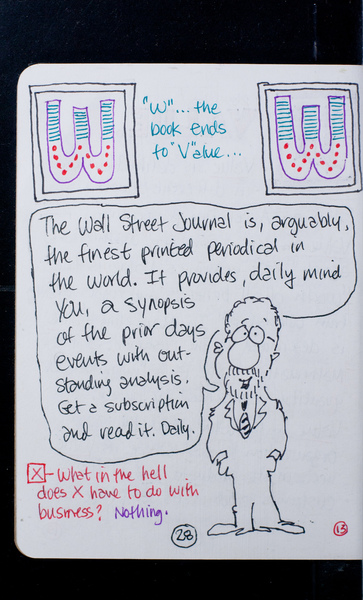 W
"W"... the
book ends
to "V"alue...
W
The Wall Street Journal is, arguably,
the finest printed periodical in
the world. It provides, daily mind
you, a synopsis
of the prior days
events with out-
standing analysis.
Get a subscription
and read it. Daily.
X - What in the hell
does X have to do with
business? Nothing.
28
13